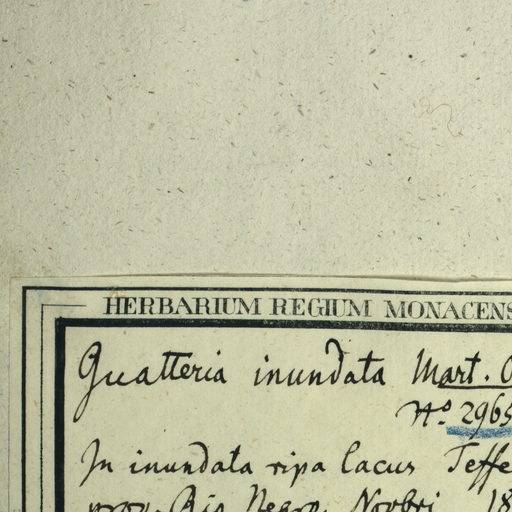 HERBARIUM REGIUM MONACENS
Guatteria inundata Mart. O
No. 2965
In inundata ripa lacus Teffe
prov. Rio Negro Novbri 18